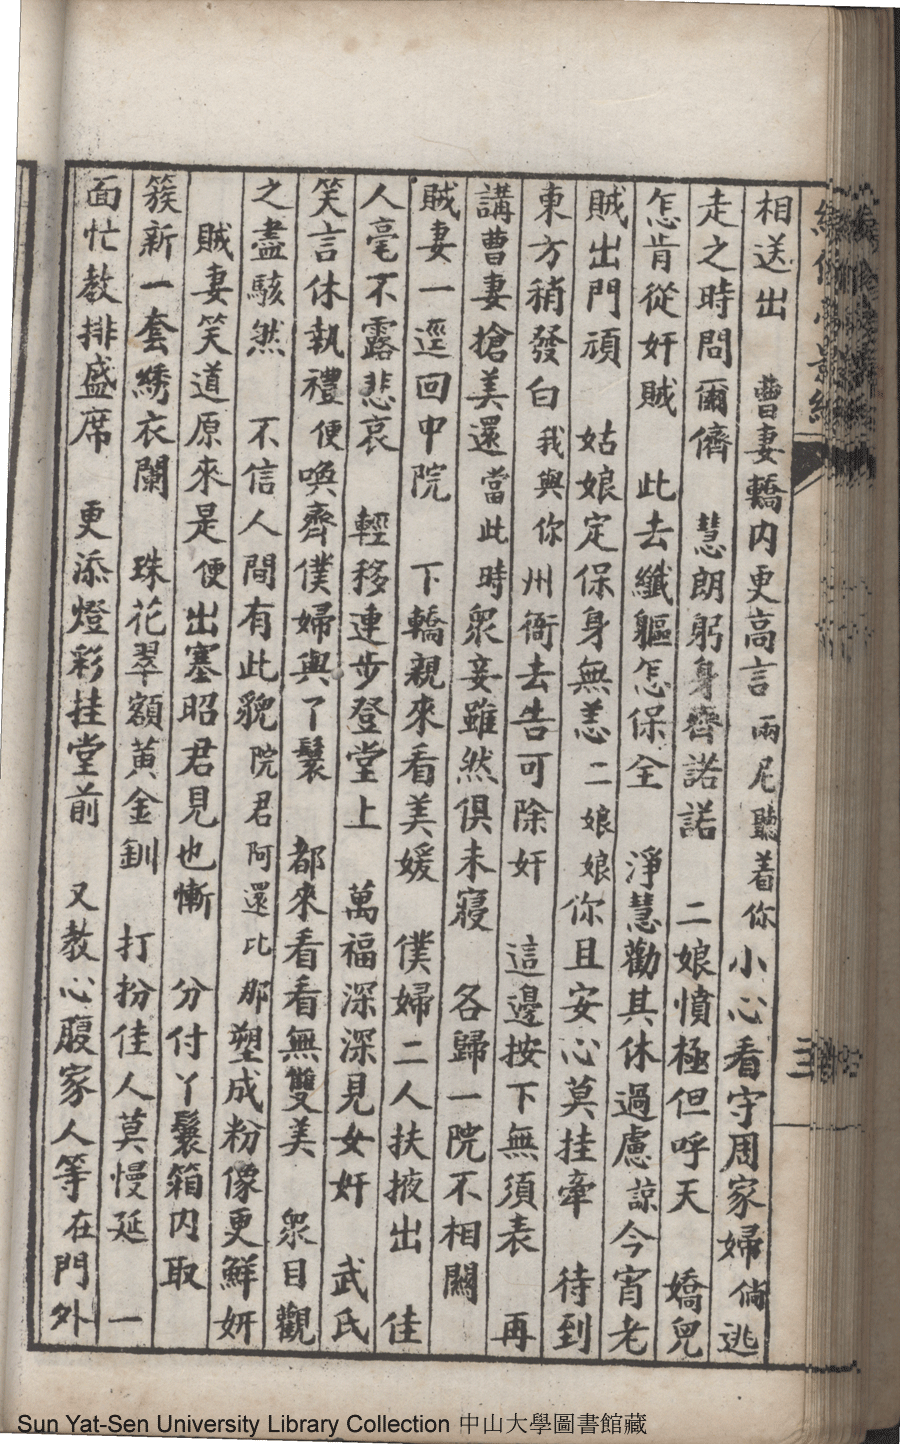 相送出　曹妻轎内更高言 兩尼聽着你小心看守周家婦 倘逃
走之時問爾儕　慧朗躬身齊諾諾　二娘憤極但呼天　嬌兒
怎肯從奸賊　此去纖軀怎保全　淨慧勸其休過慮 諒今宵老
賊出門頑　姑娘定保身無恙 二娘娘你且安心莫挂牽　待到
東方稍發白 我與你州衙去告可除奸　這邊按下無須表　再
講曹妻搶美還 當此時衆妾雖然俱未寢　各歸一院不相關
賊妻一逕回中院　下轎親來看美媛　僕婦二人扶掖出　佳
人毫不露悲哀　輕移連步登堂上　萬福深深見女奸　武氏
笑言休執禮 便喚齊僕婦與丫鬟　都來看看無雙美　衆目觀
之盡駭然　不信人間有此貌 院君阿還比那塑成粉像更鮮妍
賊妻笑道原來是 便出塞昭君見也慚　分付丫鬟箱内取
簇新一套綉衣闌　珠花翠額黃金釧　打扮佳人莫慢延　一
面忙教排盛席　更添燈彩挂堂前　又教心腹家人等 在門外
三
Sun Yat-Sen University Library Collection 中山大學圖書館藏